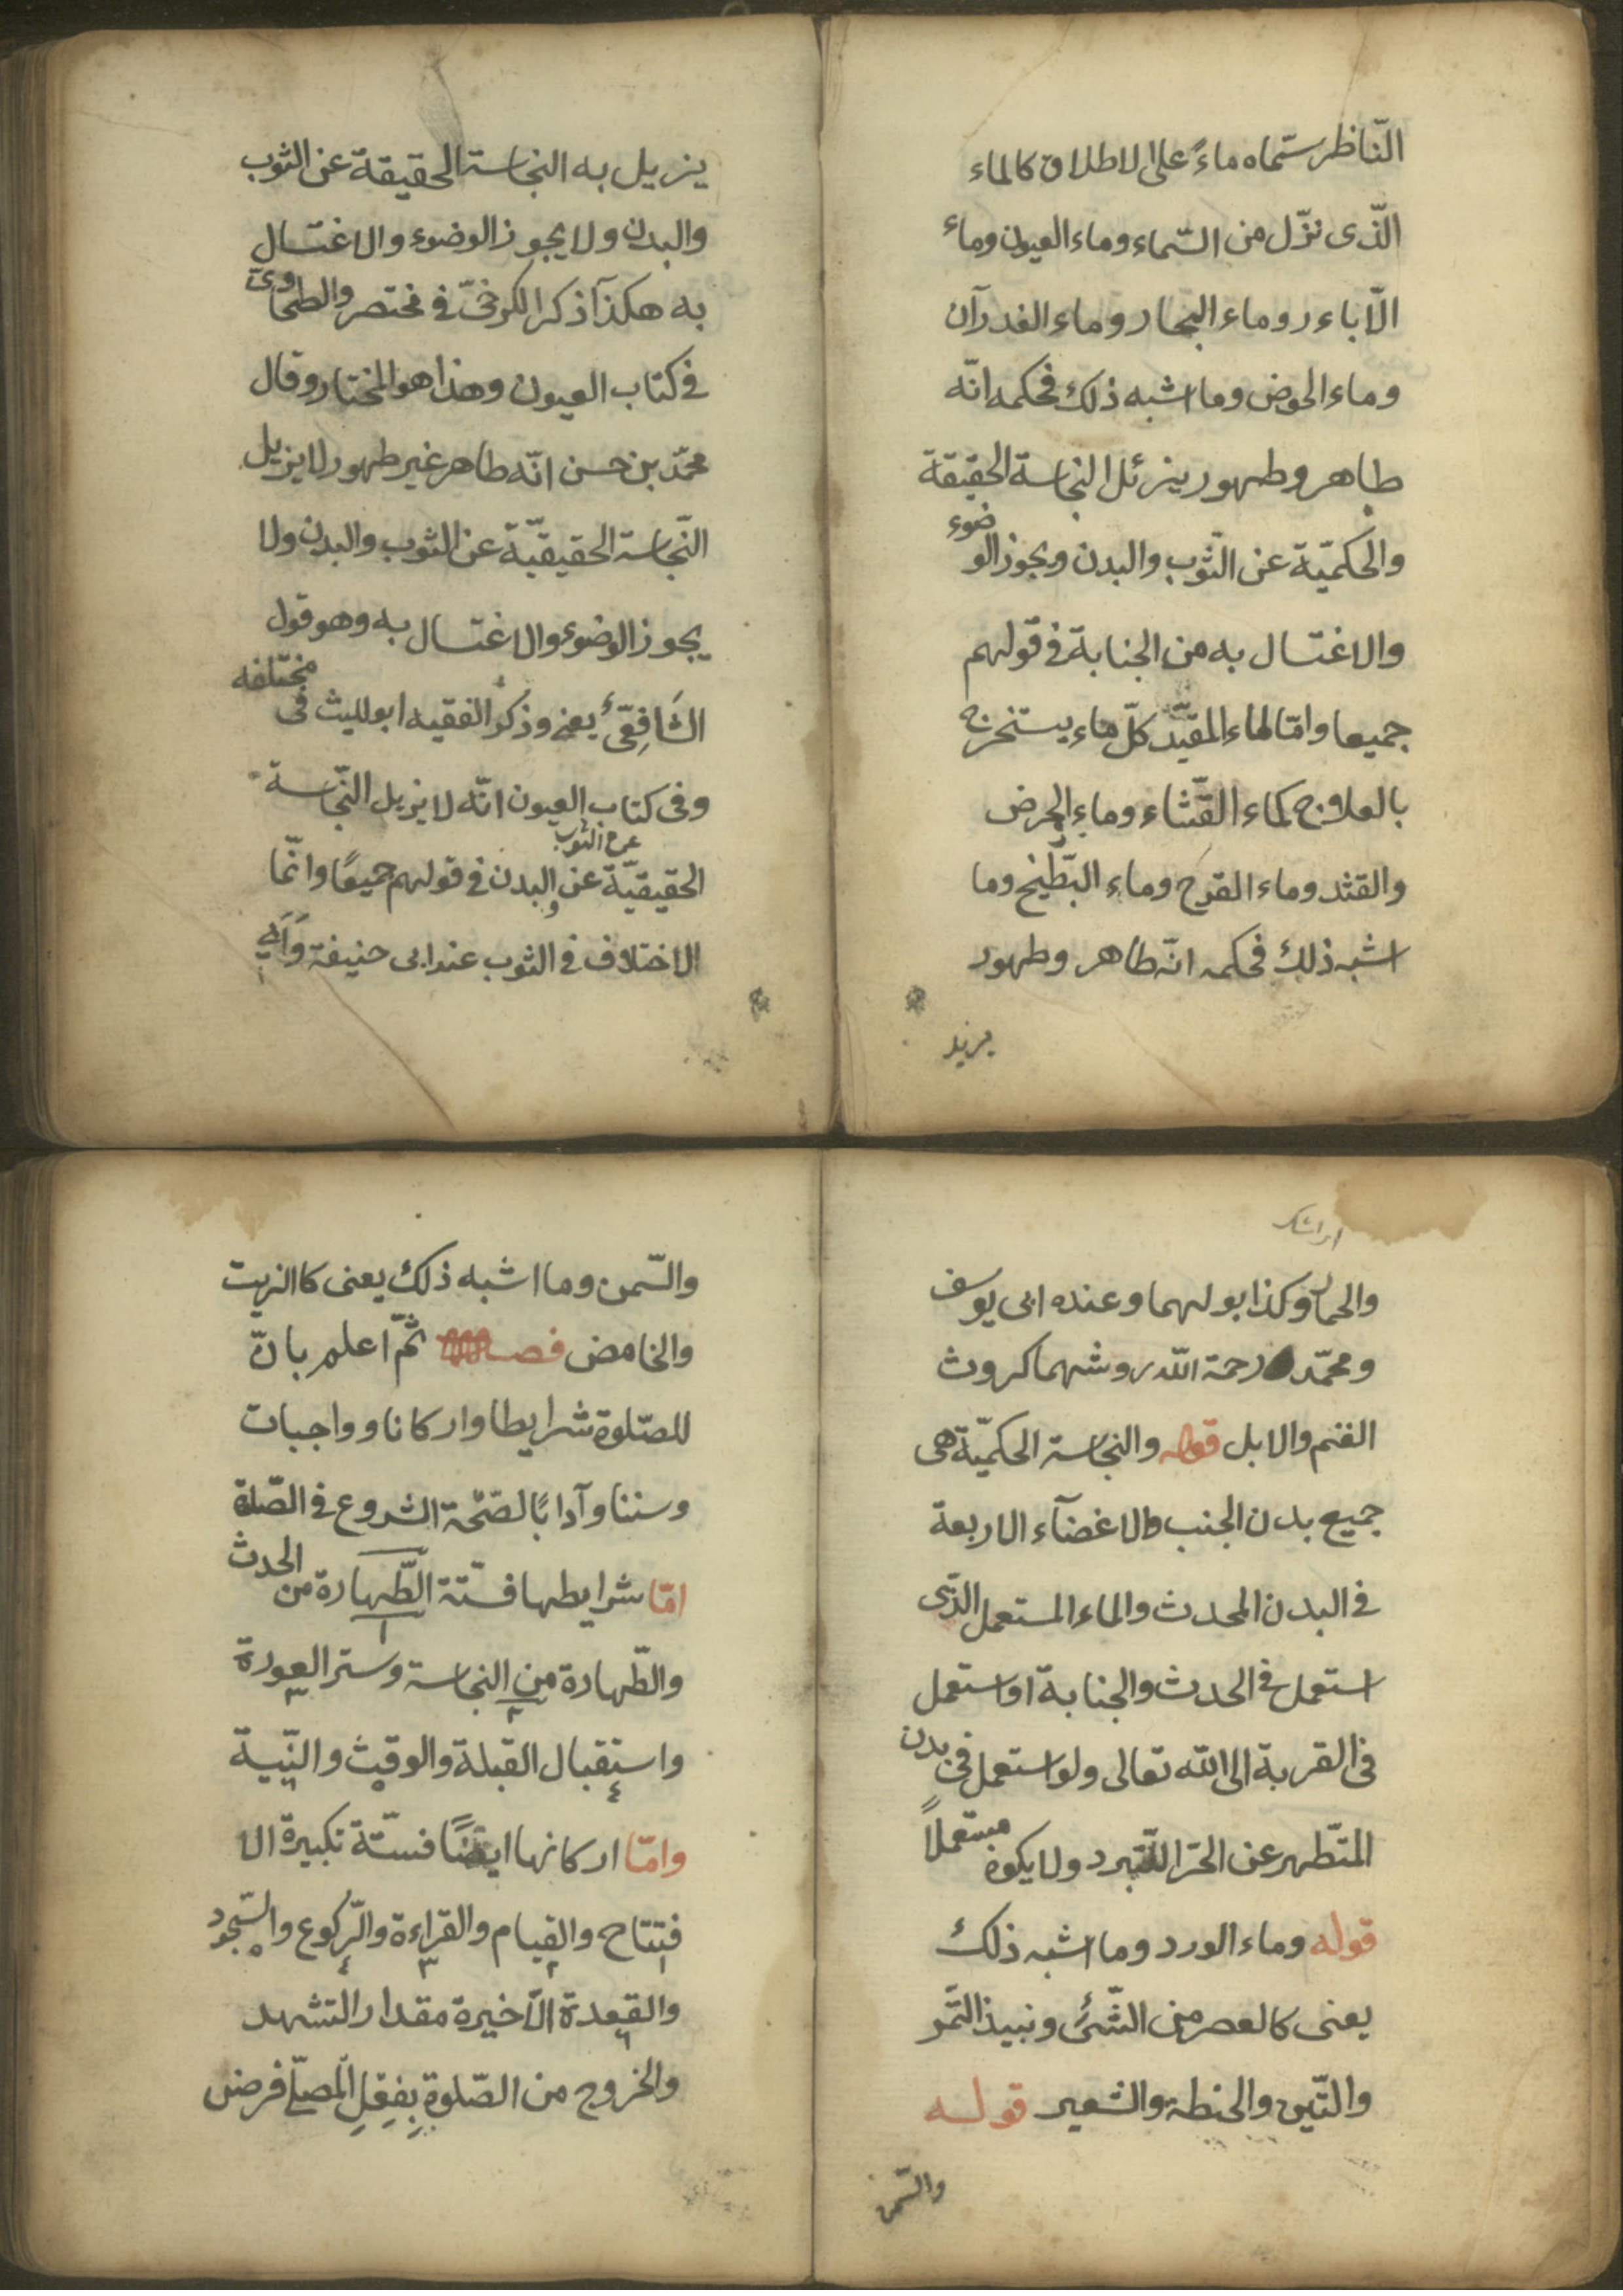 النّاظر سمّاه ماءً على الاطلاق كالماء
الّذى نزّل من السّماء وماء العيون وماء
الّاباءر وماء البحار وماء الغدرآن
وماء الحوض وما اشبه ذلك فحكمه انّه
طاهر وطهور يزئل النجاسة الحقيقة
والحكميّة عن الثّوب والبدن ويجوز الوضوء
والاغتسال به من الجنابة فى قولهم
جميعا وامّا الماء المقيّد كلّ ماء يستخرج
بالعلاج كماء القثّاء وماء الحرض
والقثد وماء القرح وماء البطّيخ وما
اشبه ذلك فحكمه انّه طاهر وطهور
يزيل
يزيل به النجاسة الحقيقة عن الثوب
والبدن ولا يجوز الوضوء والاغتسال
به هكذآ ذكر الكرخىّ فى مختصر والطحاوىّ
فى كتاب العيون وهذا هو المختار وقال
محمّد بن حسن انّه طاهر غير طهور لا يزيل
النّجاسة الحقيقيّة عن الثوب والبدن ولا
يجوز الوضوء والاغتسال به وهو قول
الشَافِعّى يعنى وذكر الفقيه ابو الليث فى مختلفه
وفى كتاب العيون انّه لا يزيل النّجاسة
عن الثوب
الحقيقيّة عن البدن فى قولهم جميعًا وانّما
الاختلاف فى الثوب عند ابى حنيفة وَاَبِى
والحمار وكذا بولهما وعنده ابى يوسف
ومحمّد رحمة اللّه روشهما كروث
الغنم والابل قوله والنجاسة الحكميّة هى
جميع بدن الجنب والاغضآء الاربعة
فى البدن المحدث والماء المستعمل الذّى
استعمل فى الحدث والجنابة او استعمل
فى القربة الى اللّه تعالى ولو استعمل فى بدن
المتّطهر عن الحرّ اللّتبرد ولا يكون مستعملاً
قوله وماء الورد وما اشبه ذلك
يعنى كالعصر من الشّئ ونبيذ التّمر
والتّين والحنطة والشعير قوله
والسّمن
والسّمن وما اشبه ذلك يعنى كاالزيت
والخامض فصل ثمّ اعلم بانّ
للصّلوة شرايطا واركانا وواجبات
وسننا وآدابًا لصّحّة الشروع فى الصّلة
امّا شرايطها فستّة الطّهارة من الحدث
١
والطّهارة من النجاسة وستر العورة
٢ ٣
واستقبال القبلة والوقت والنّيّة
٤ ٥ ٦
وامّا اركانها ايضًا فستّة تكبيرة الا
فتتاح والقيام والقراءة والرّكوع والسّجود
١ ٢ ٣ ٤ ٥
والقعدة الاّخيرة مقدار التشهد
٦
والخروج من الصّلوة بِفِعْلِ المصلّى فرض